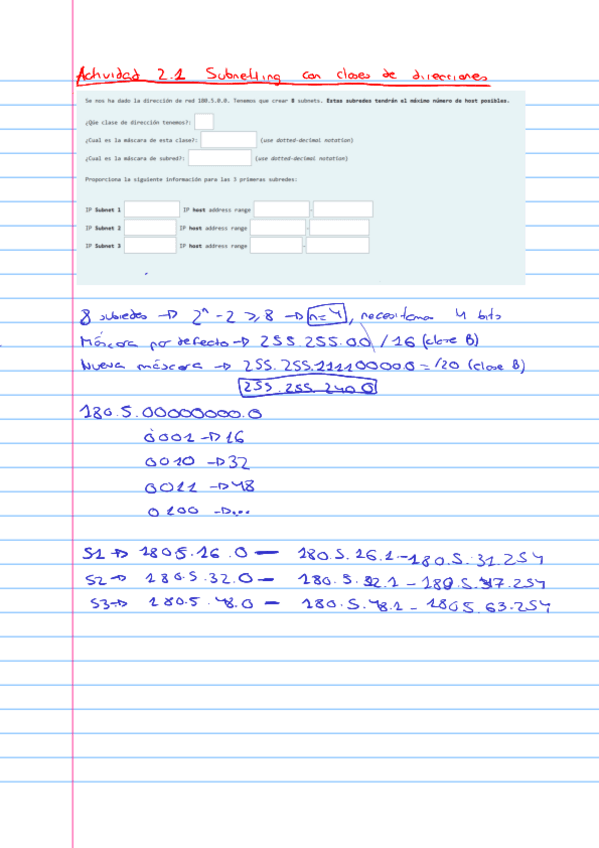 Actividad 2.1 Subnetting con clases de direcciones
Se nos ha dado la dirección de red 180.5.0.0. Tenemos que crear 8 subnets. Estas subredes tendrán el máximo número de host posibles.
¿Qúe clase de dirección tenemos?:
¿Cual es la máscara de esta clase?: (use dotted-decimal notation)
¿Cual es la máscara de subred?: (use dotted-decimal notation)
Proporciona la siguiente información para las 3 primeras subredes:
IP Subnet 1 IP host address range -
IP Subnet 2 IP host address range -
IP Subnet 3 IP host address range -
8 subredes → 2ⁿ - 2 ≥ 8 → n=4, necesitamos 4 bits
Máscara por defecto → 255.255.0.0 /16 (clase B)
Nueva máscara → 255.255.11110000.0 = /20 (clase B)
255.255.240.0
180.5.00000000.0
0001 → 16
0010 → 32
0011 → 48
0100 → ...
S1 → 180.5.16.0 — 180.5.16.1 - 180.5.31.254
S2 → 180.5.32.0 — 180.5.32.1 - 180.5.47.254
S3 → 180.5.48.0 — 180.5.48.1 - 180.5.63.254